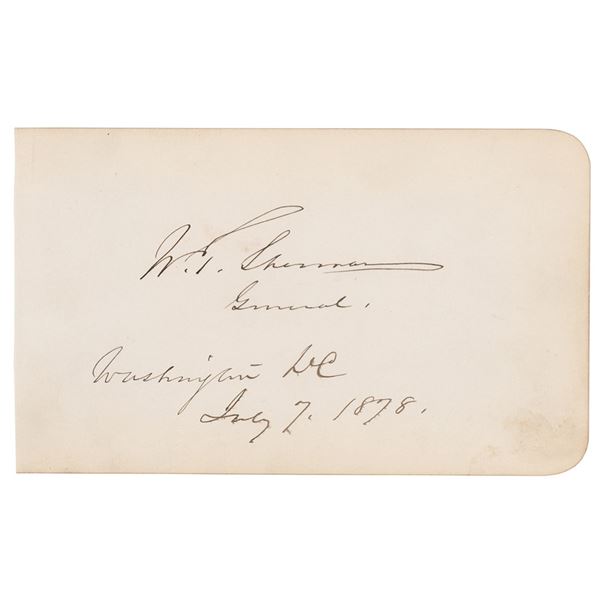 W. T. Sherman
General.
Washington DC
July 7. 1878.